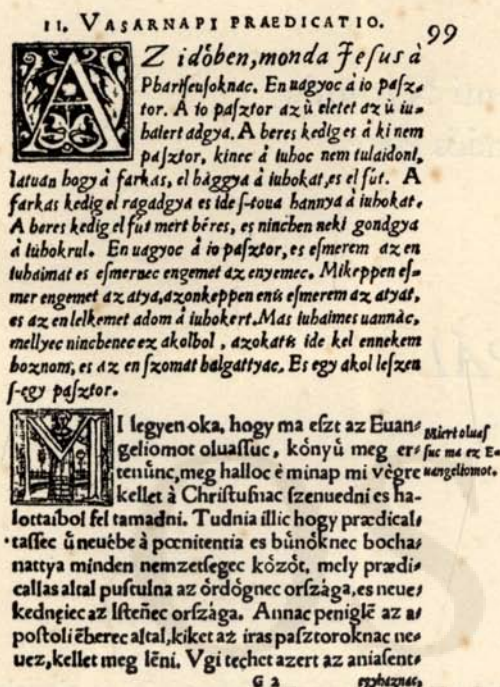 II. VASARNAPI PRAEDICATIO.
99
AZ idóben, monda Jesus à
Phariseusoknac. En uagyoc à io pasz-
tor. A io pasztor az ù eletet az ù iu-
haiert adgya. A beres kedig es à ki nem
pasztor, kinec à iuhoc nem tulaidoni,
latuan hogy à farkas, el hàggya à iuhokat, es el fút. A
farkas kedig el ragadgya es ide s-toua hannya à iuhokat.
A beres kedig el fút mert béres, es ninchen neki gondgya
à iuhokrul. En uagyoc à io pasztor, es esmerem az en
iuhaimat es esmernec engemet az enyemec. Mikeppen es-
mer engemet az atya, azonkeppen enis esmerem az atyat,
es az en lelkemet adom à iuhokert. Mas iuhaimes uannàc,
mellyec ninchenec ez akolbol, azokatis ide kel ennekem
hoznom, es az en szomat halgattyac. Es egy akol leszen
s-egy pasztor.
MI legyen oka, hogy ma eszt az Euan-
geliomot oluassuc, kónyú meg er-
tenúnc, meg halloc é minap mi vègre
kellet à Christusnac szenuedni es ha-
lottaibol fel tamadni. Tudnia illic hogy prædical-
tassec ú neuébe à pœnitentia es búnóknec bocha-
nattya minden nemzetsegec kózót, mely prædi-
callas altal pustulna az órdógnec orszâga, es neue-
kednéiec az Istéñec orszâga. Annac peniglē az a-
postoli ēberec altal, kiket az iras pasztoroknac ne-
uez, kellet meg lēni. Vgi techet azert az aniasent-
Miert oluas
suc ma ez E-
uangeliomot.
G 2
egyhaznac,